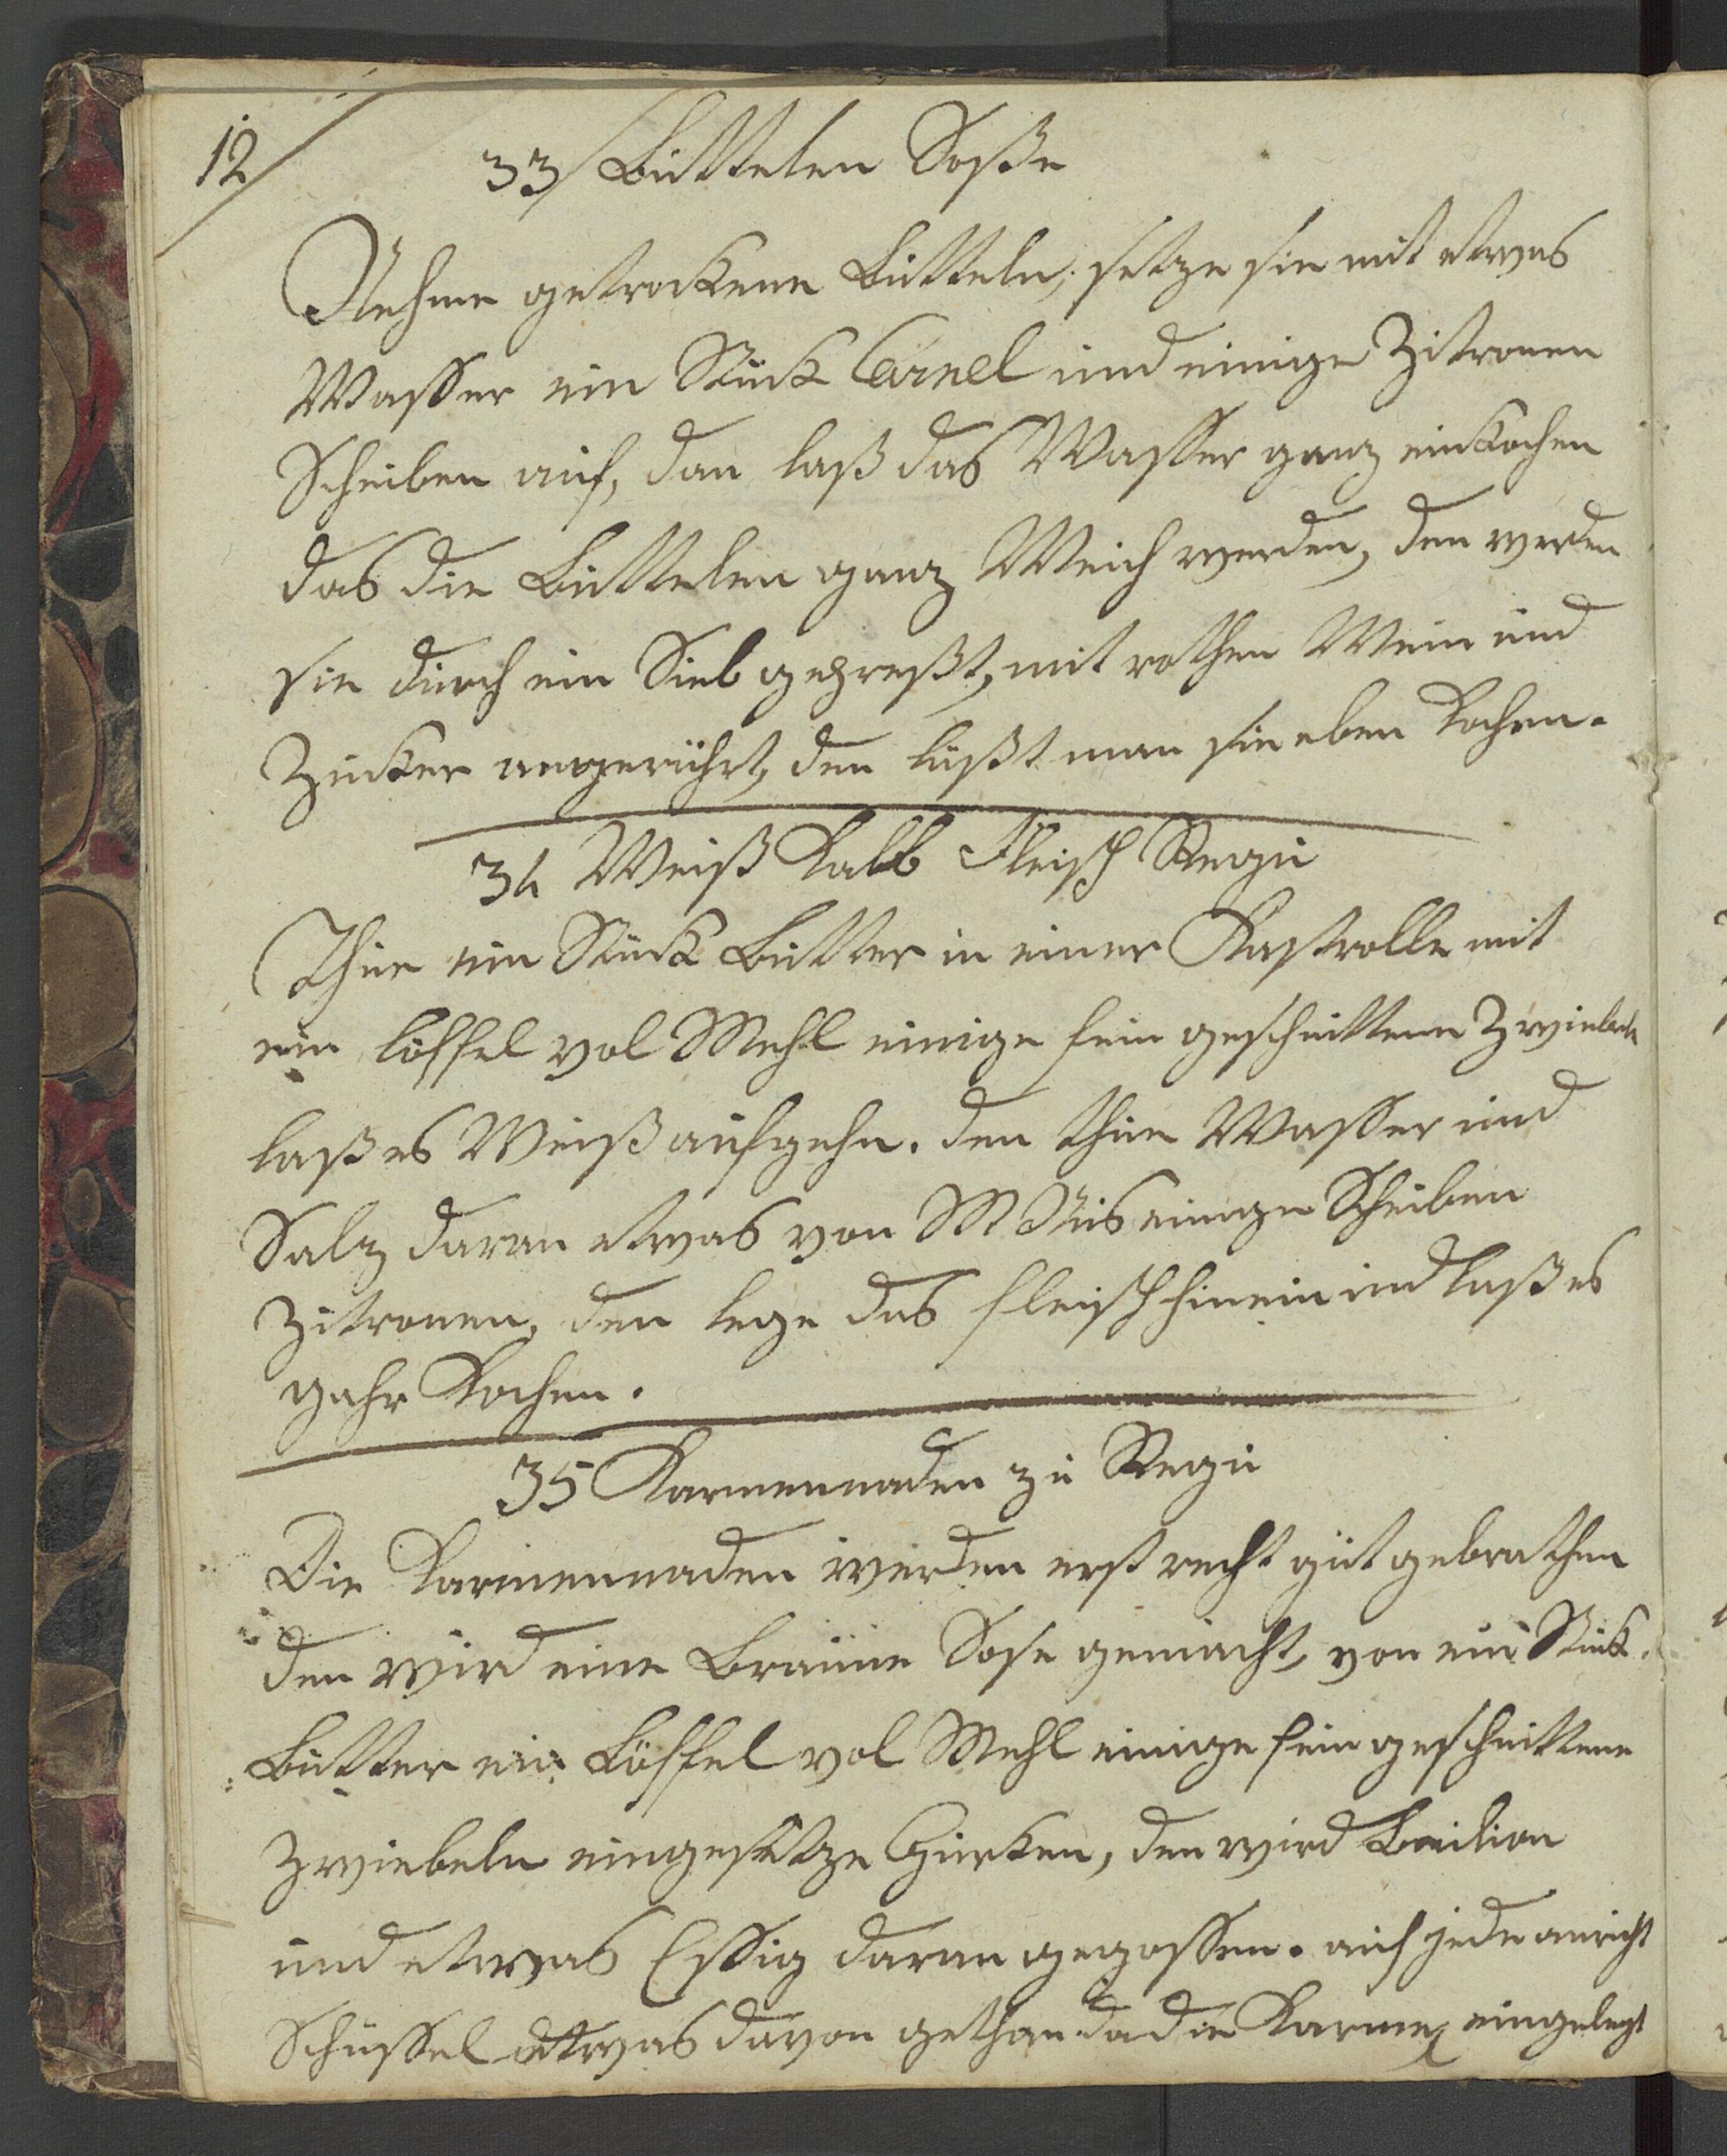 12/
33/ Buttelen Soße
Nehme getrockene Butteln, setze sie mit etwas
Wasser ein Stück Carnel und einige Zitronen
Scheiben auf, dan laß das Wasser ganz einkochen
das die Buttelen ganz Weich werden, den werden
sie durch ein Sieb gepreßt, mit rothen Wein und
Zucker angerührt, den läßt man sie eben Kochen.
34 Weiß Kalb Fleisch Ragu
Thue ein Stück Butter in einer Kastrolle mit
ein löffel vol Mehl einige fein geschnittene Zwiebeln
laß es Weiß aufgehn. den thue Wasser und
Salz daran etwas von M Nüs einige Scheiben
Zitronen, den lege das fleisch hinein und laß es
gahr Kochen.
35 Karmenaden zu Ragu
Die Karmenaden werden erst recht gut gebrathen
den wird eine Braune Sose gemacht, von ein Stück
Butter ein Löffel vol Mehl einige fein geschnittene
Zwiebeln eingesetze Gurken, den wird Builion
und etwas Essig daran gegossen. auf jede anricht
Schüssel etwas davon gethan da die Karme eingelegt